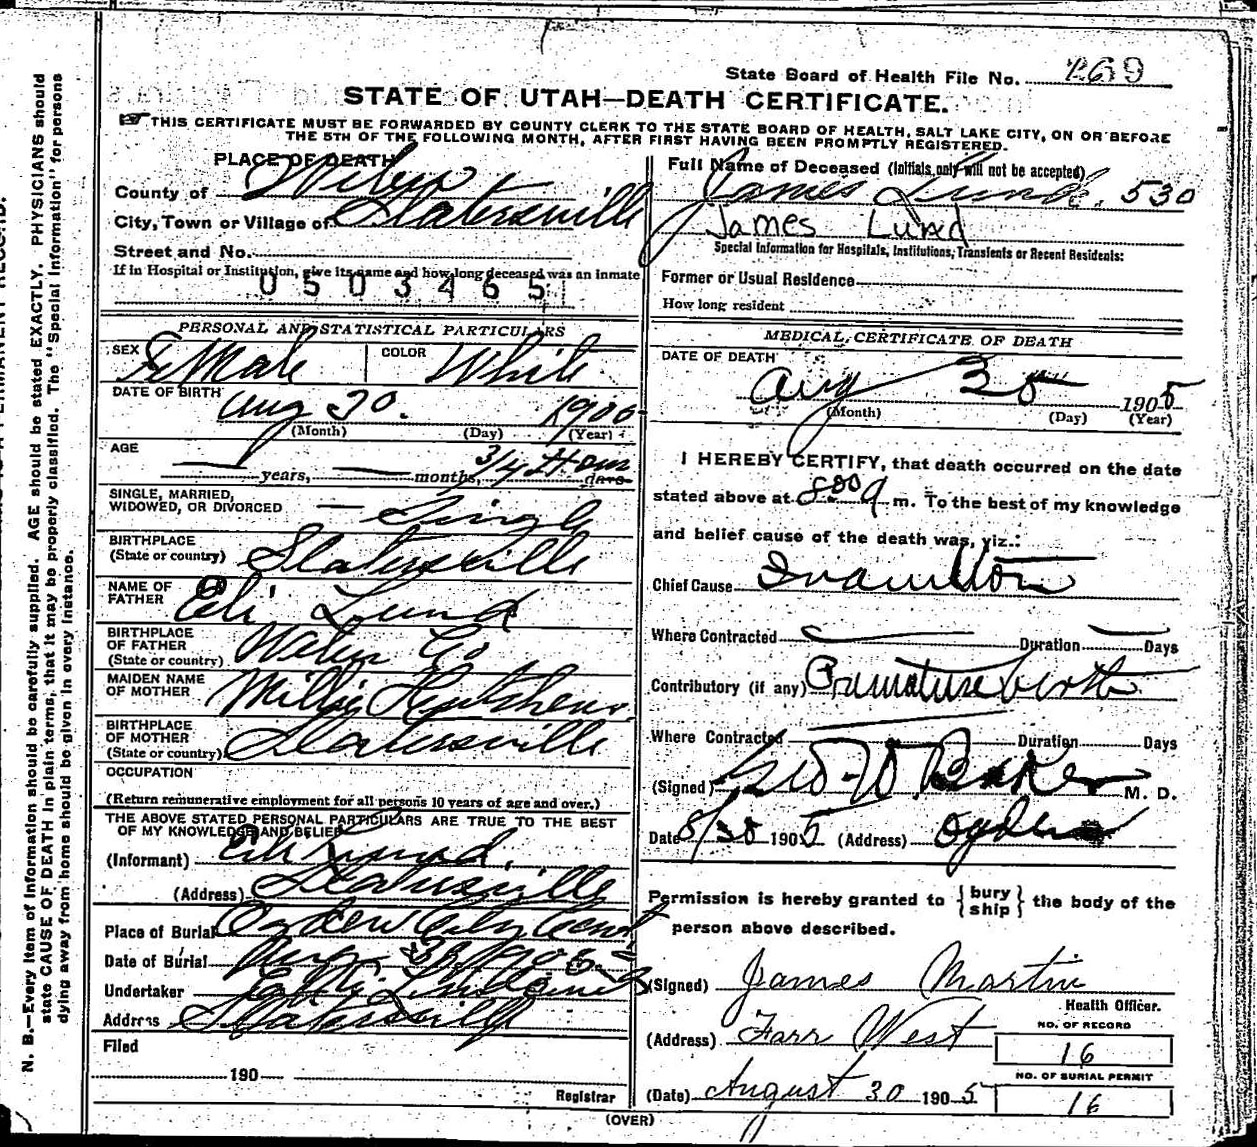 State Board of Health File No. 269
STATE OF UTAH—DEATH CERTIFICATE.
THIS CERTIFICATE MUST BE FORWARDED BY COUNTY CLERK TO THE STATE BOARD OF HEALTH, SALT LAKE CITY, ON OR BEFORE
THE 5TH OF THE FOLLOWING MONTH, AFTER FIRST HAVING BEEN PROMPTLY REGISTERED.
PLACE OF DEATH
County of Weber
City, Town or Village of Slatersville
Street and No.
If in Hospital or Institution, give its name and how long deceased was an inmate
0503465
PERSONAL AND STATISTICAL PARTICULARS
SEX FeMale COLOR White
DATE OF BIRTH Aug 30. 1905
(Month) (Day) (Year)
AGE
years, months, 3/4 Hour days
SINGLE, MARRIED,
WIDOWED, OR DIVORCED Single
BIRTHPLACE
(State or country) Slatersville
NAME OF
FATHER Eli Lund
BIRTHPLACE
OF FATHER
(State or country) Weber Co
MAIDEN NAME
OF MOTHER Millie
BIRTHPLACE
OF MOTHER
(State or country) Slatersville
OCCUPATION
(Return remunerative employment for all persons 10 years of age and over.)
THE ABOVE STATED PERSONAL PARTICULARS ARE TRUE TO THE BEST
OF MY KNOWLEDGE AND BELIEF
(Informant) Eli Lund.
(Address) Slatersville
Place of Burial Ogden City Cemt
Date of Burial Aug 30 1905
Undertaker
Address Slatersville
Filed
190
Registrar
Full Name of Deceased (Initials only will not be accepted)
James Lund. 530
James Lund
Special Information for Hospitals, Institutions, Transients or Recent Residents:
Former or Usual Residence
How long resident
MEDICAL CERTIFICATE OF DEATH
DATE OF DEATH
Aug 30 1905
(Month) (Day) (Year)
I HEREBY CERTIFY, that death occurred on the date
stated above at 8 00 a m. To the best of my knowledge
and belief cause of the death was, viz.:
Chief Cause Inanition
Where Contracted Duration Days
Contributory (if any) Premature birth
Where Contracted Duration Days
(Signed) Geo W Baker M. D.
Date 8/30 1905 (Address) Ogden
Permission is hereby granted to {bury ship} the body of the
person above described.
(Signed) James Martin
Health Officer.
(Address) Farr West
NO. OF RECORD
16
NO. OF BURIAL PERMIT
16
(Date) August 30 1905
(OVER)
N. B.—Every item of information should be carefully supplied. AGE should be stated EXACTLY. PHYSICIANS should
state CAUSE OF DEATH in plain terms, that it may be properly classified. The "Special Information" for persons
dying away from home should be given in every instance.